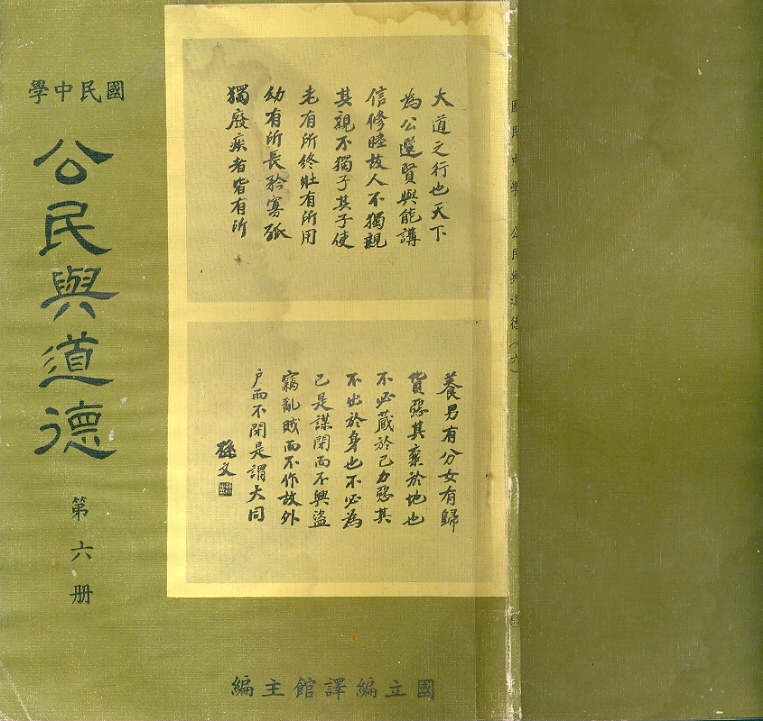 國民中學
公民與道德
第六册
大道之行也天下
為公選賢與能講
信修睦故人不獨親
其親不獨子其子使
老有所終壯有所用
幼有所長矜寡孤
獨廢疾者皆有所
養男有分女有歸
貨惡其棄於地也
不必藏於己力惡其
不出於身也不必為
己是謀閉而不興盜
竊亂賊而不作故外
戶而不閉是謂大同
孫文
國立編譯館主編
國民中學 公民與道德（六）